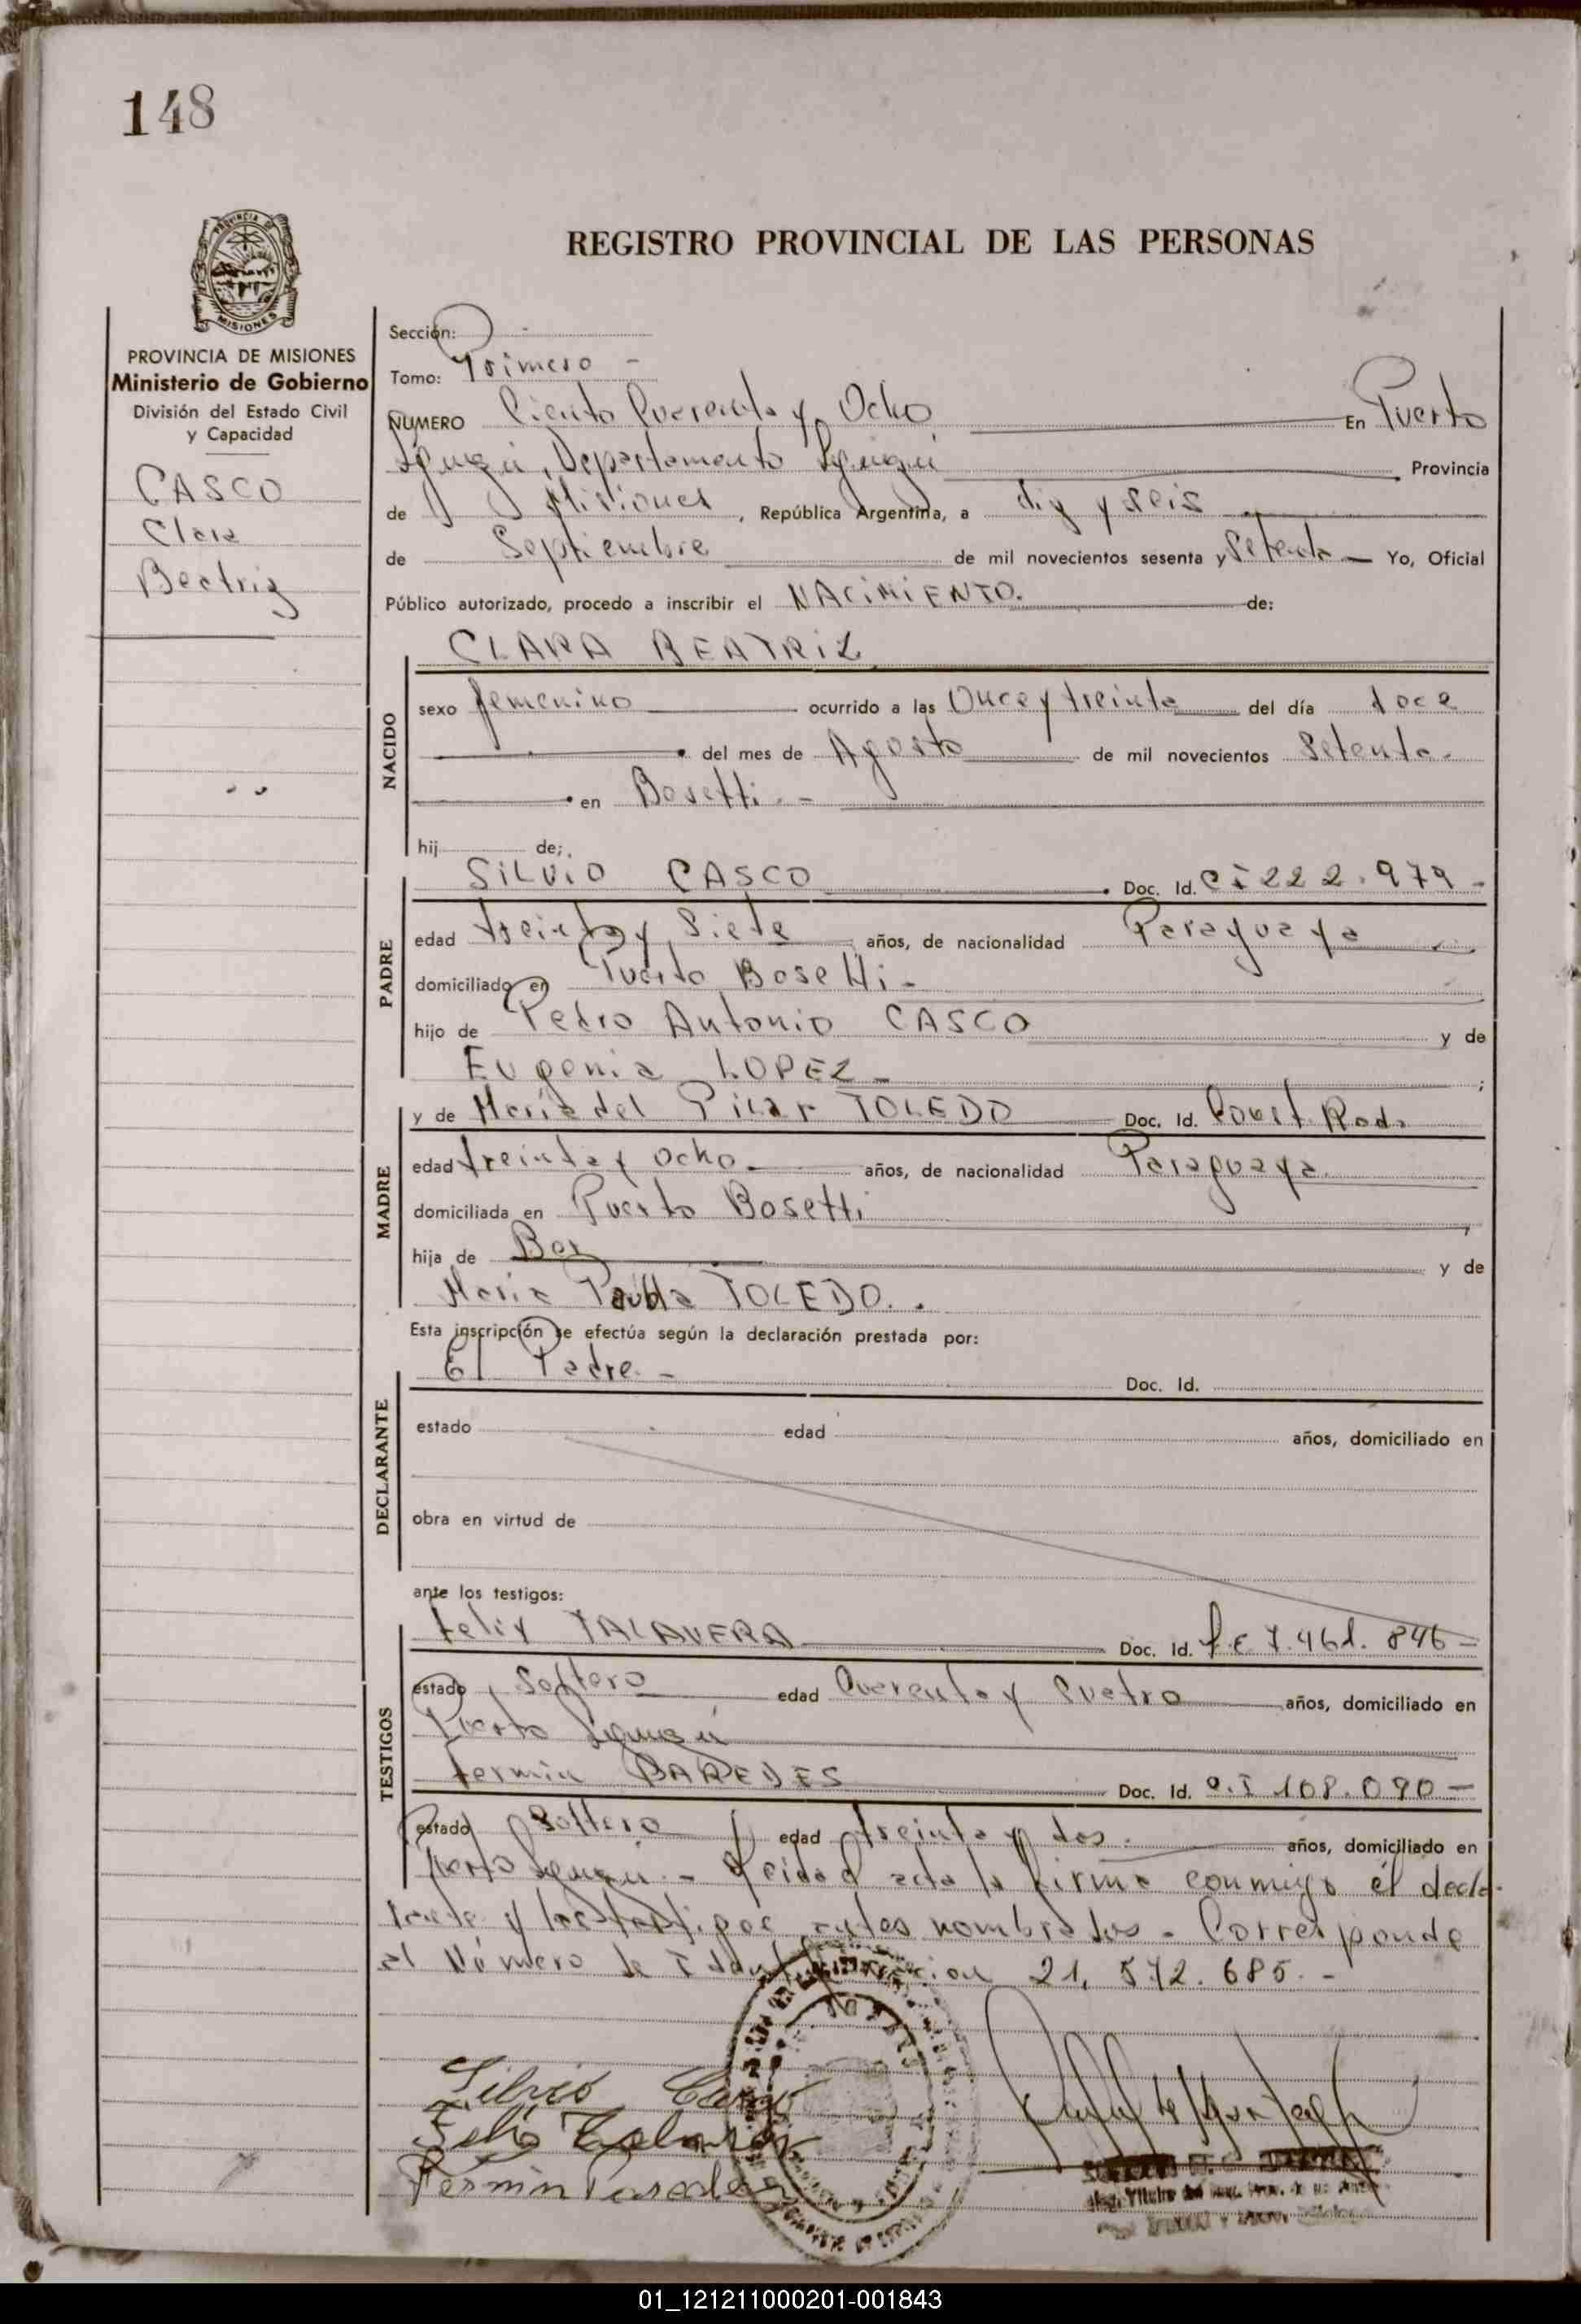 148
PROVINCIA DE
MISIONES
REGISTRO PROVINCIAL DE LAS PERSONAS
PROVINCIA DE MISIONES
Ministerio de Gobierno
División del Estado Civil
y Capacidad
CASCO
Clara
Beatriz
Sección:
Tomo: Primero -
NUMERO Ciento Cuarenta y Ocho En Puerto
Iguazú, Departamento Iguazú Provincia
de Misiones, República Argentina, a diz y seis
de Septiembre de mil novecientos sesenta y Setenta Yo, Oficial
Público autorizado, procedo a inscribir el NACIMIENTO. de:
NACIDO
CLARA BEATRIZ
sexo femenino ocurrido a las Once y treinta del día doce
del mes de Agosto de mil novecientos Setenta.
en Bosetti. -
hij de:
PADRE
SILVIO CASCO Doc. Id. CI 222.979 -
edad treinta y Siete años, de nacionalidad Paraguaya
domiciliado en Puerto Bosetti -
hijo de Pedro Antonio CASCO y de
Eugenia LOPEZ - ;
MADRE
y de María del Pilar TOLEDO Doc. Id. Const. Rad.
edad treinta y ocho. años, de nacionalidad Paraguaya
domiciliada en Puerto Bosetti
hija de y de
Maria Pabla TOLEDO..
Esta inscripción se efectúa según la declaración prestada por:
DECLARANTE
El Padre. - Doc. Id.
estado edad años, domiciliado en
obra en virtud de
ante los testigos:
TESTIGOS
Felix TALAVERA Doc. Id. L.E 7.461.846 -
estado Soltero edad Cuarenta y Cuatro años, domiciliado en
Puerto Iguazú
Fermin PAREDES Doc. Id. C.I 108.090 -
estado Soltero edad treinta y dos. años, domiciliado en
Puerto Iguazú. - Leida el acta la firma conmigo él decla-
rante y los testigos antes nombrados. Corresponde
al Número de Identificacion 21.572.685. -
Silvio Casco
Felix Talavera
Fermin Paredes
01_121211000201-001843